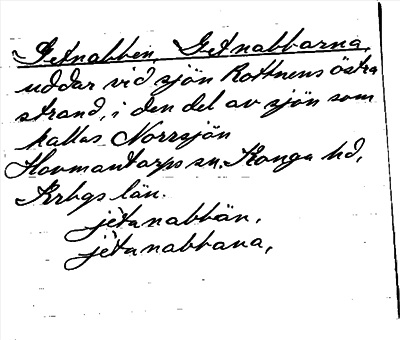 Getnabben, Getnabbarna,
uddar vid sjön Rottnens östra
strand, i den del av sjön som
kallas Norrsjön
Hovmantorps sn. Konga hd,
Krbgs län.
jètanabbän,
jètanabbana,